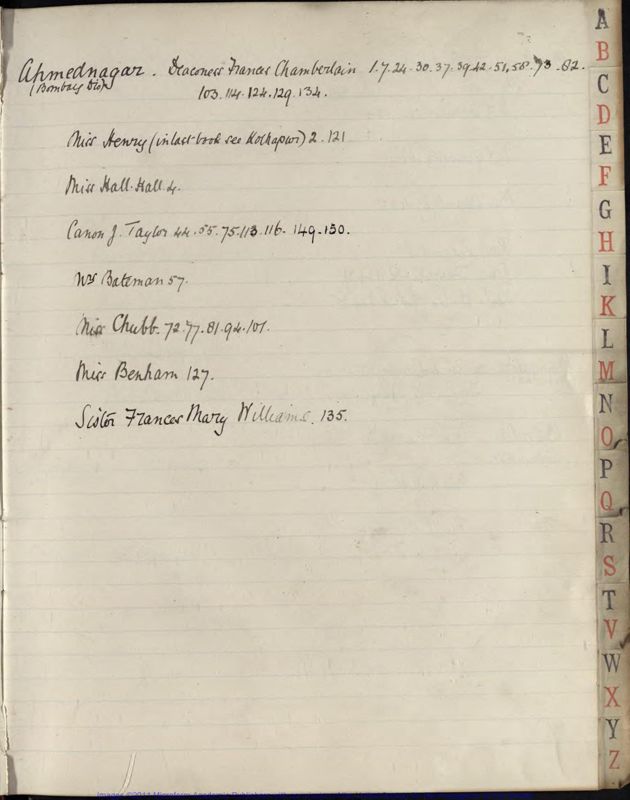 Ahmednagar. Deaconess Frances Chamberlain 1.7.24.30.37.39.42.51.58.73.82.
(Bombay Dio)
103.114.124.129.134.
Miss Henry (in last book see Kolhapur) 2.121
Miss Hall-Hall 4.
Canon J. Taylor 44.55.75.113.116.149.150.
Mrs Bateman 57.
Miss Chubb. 72.77.81.94.101.
Miss Benham 127.
Sister Frances Mary Williams. 135.
A
B
C
D
E
F
G
H
I
K
L
M
N
O
P
Q
R
S
T
V
W
X
Y
Z